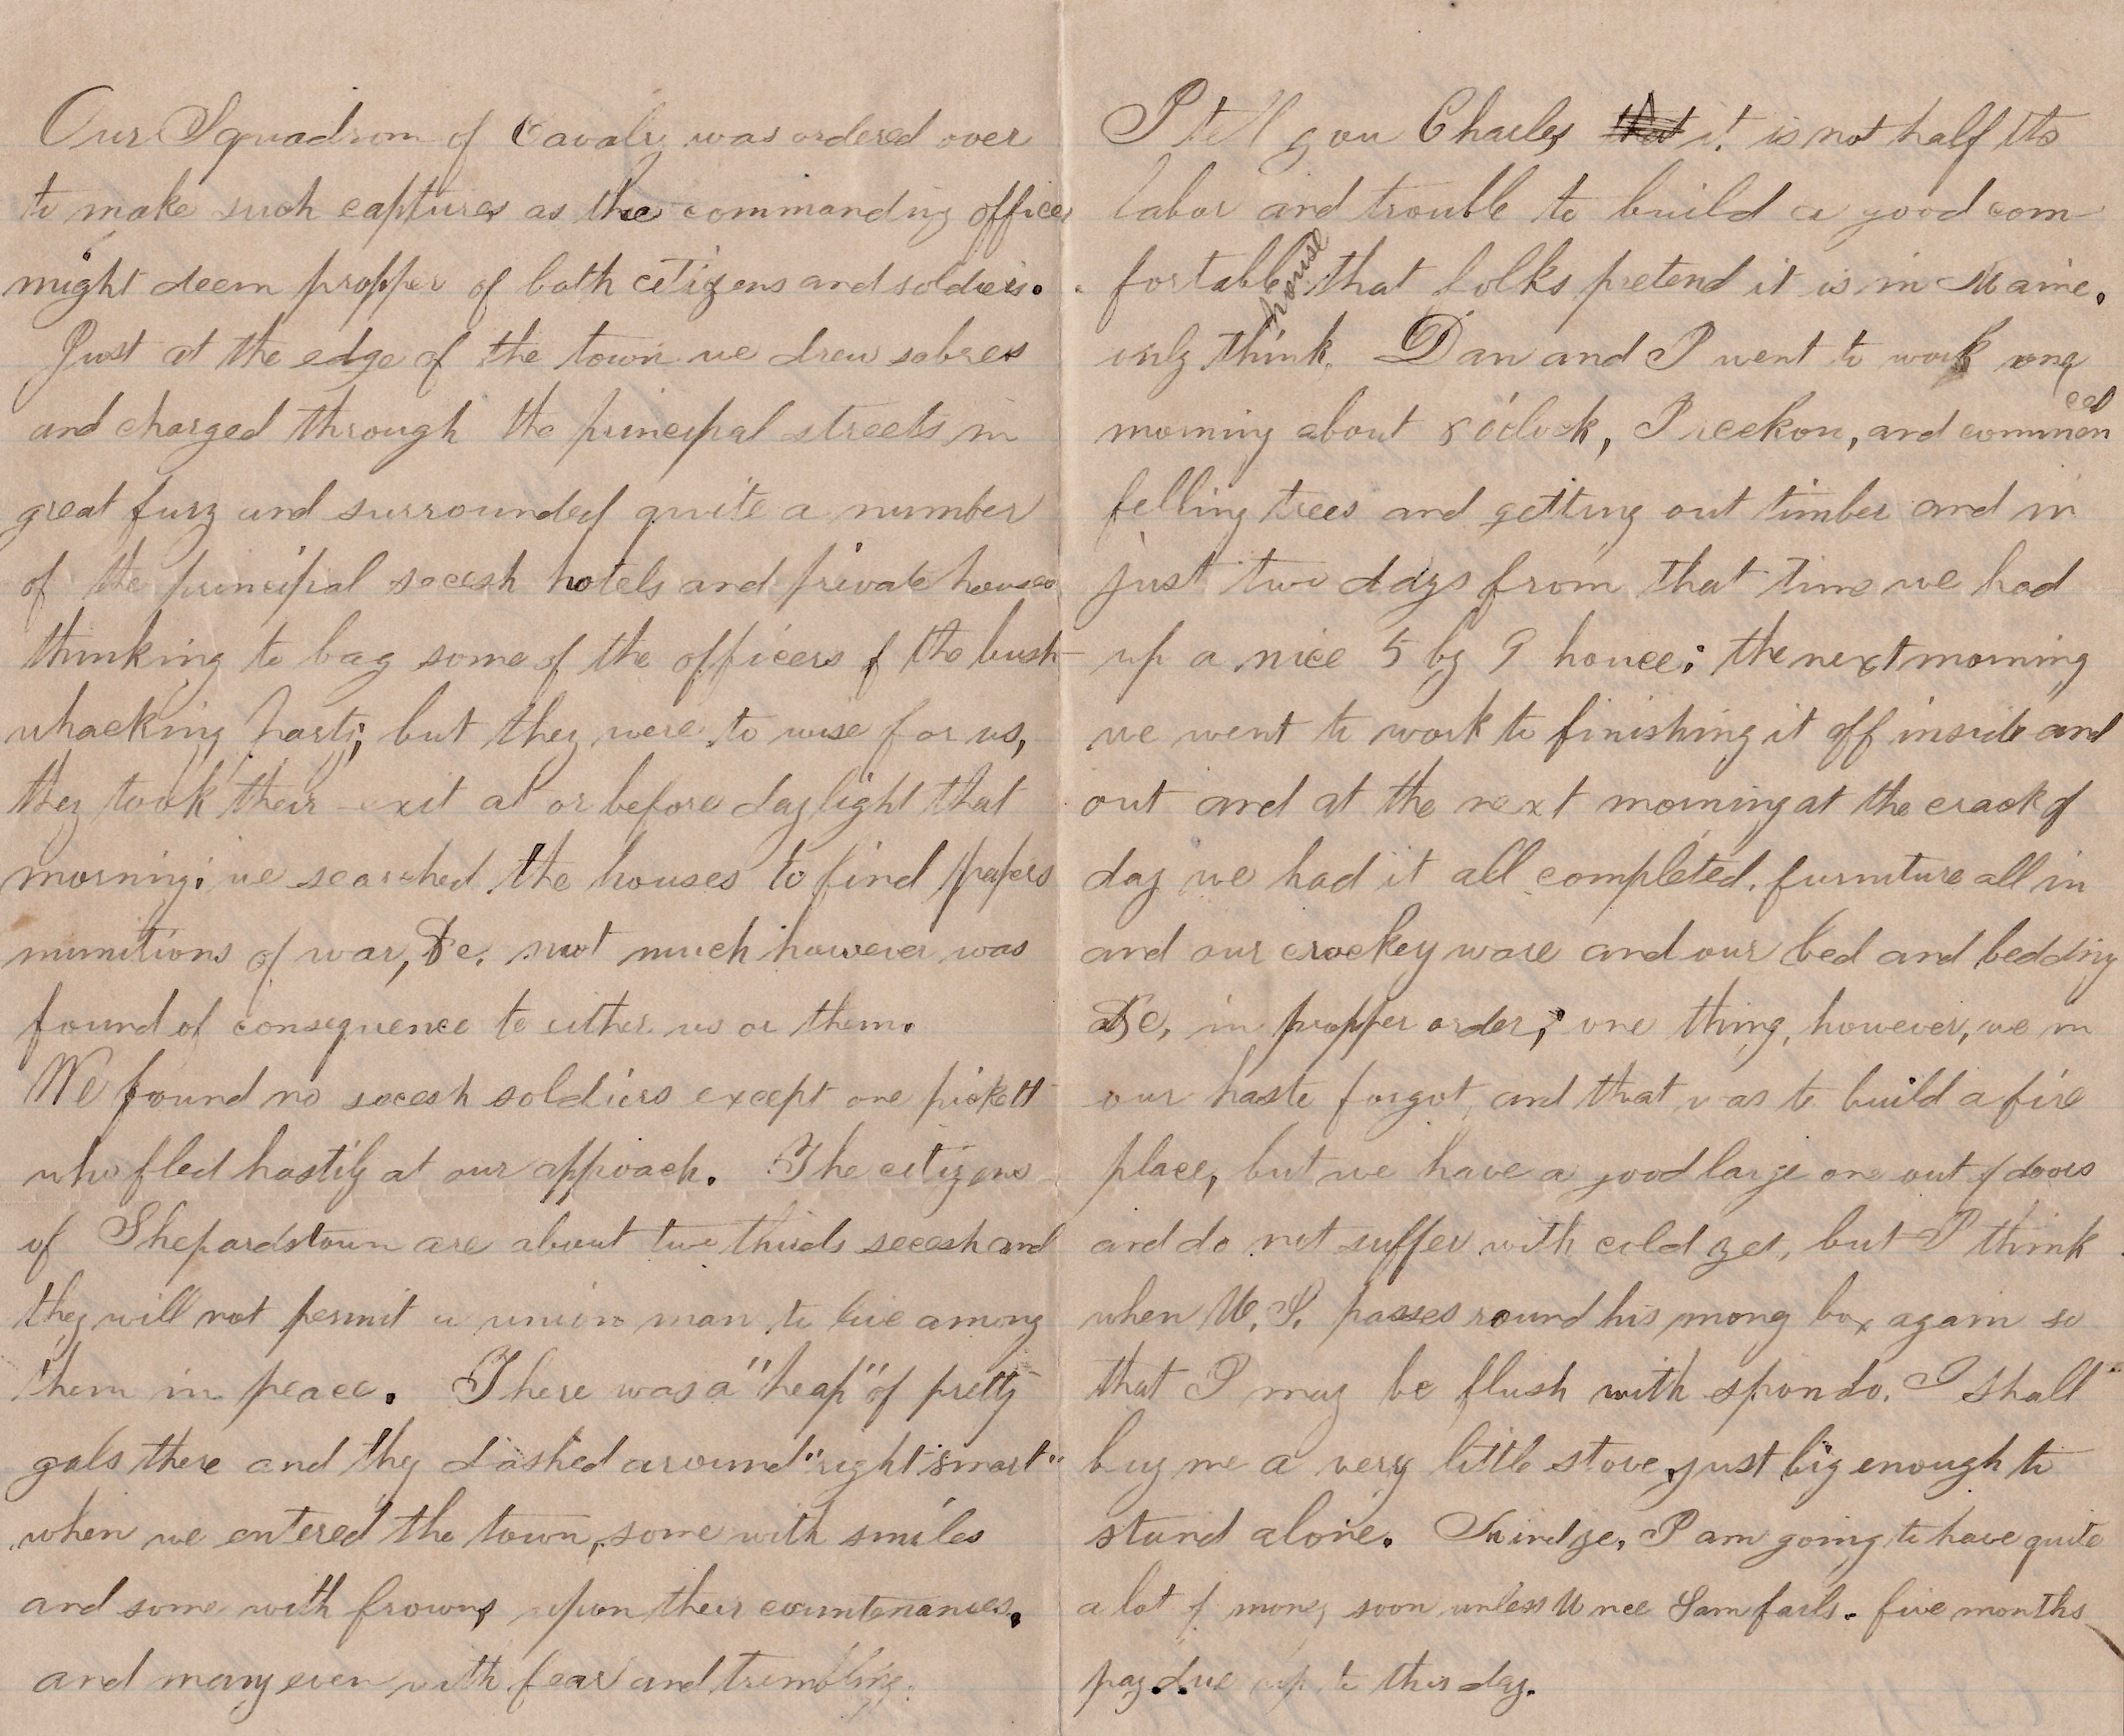 Our Squadron of Cavalry was ordered over
to make such captures as the commanding officer
might deem propper of both citizens and soldiers.
Just at the edge of the town we drew sabres
and charged through the principal streets in
great fury and surrounded quite a number
of the principal secesh hotels and private houses
thinking to bag some of the officers of the bush-
whacking party; but they were to wise for us,
they took their exit at or before daylight that
morning; we searched the houses to find papers
munitions of war, &c. not much however was
found of consequence to either us or them.
We found no secesh soldiers except one pickett
who fled hastily at our approach. The citizens
of Shepardstown are about two thirds secesh and
they will not permit a union man to live among
them in peace. There was a "heap" of pretty
gals there and they dashed around "right smart"
when we entered the town, some with smiles
and some with frowns upon their countenances.
and many even with fear and trembling.
I tell you Charley it is not half the
labor and trouble to build a good com
fortable house that folks pretend it is in Maine.
only think. Dan and I went to work one
morning about 8 o'clock, I reckon, and commenced
felling trees and getting out timber and in
just two days from that time we had
up a nice 5 by 9 house; the next morning
we went to work to finishing it off inside and
out and at the next morning at the crack of
day we had it all completed. furniture all in
and our crockey ware and our bed and bedding
&c, in propper order; one thing, however, we in
our haste forgot, and that was to build a fire
place, but we have a good large one out of doors
and do not suffer with cold yet, but I think
when U.S. passes round his mony box again so
that I may be flush with spondo. I shall
buy me a very little stove, just big enough to
stand alone. I am going to have quite
a lot of mony soon unless Unce Sam fails. five months
pay due up to this day.